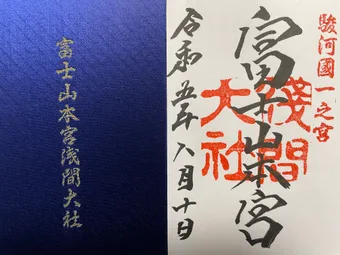 富士山本宮浅間大社
駿河國一之宮
富士山本宮
淺間
大社
令和五年八月十日